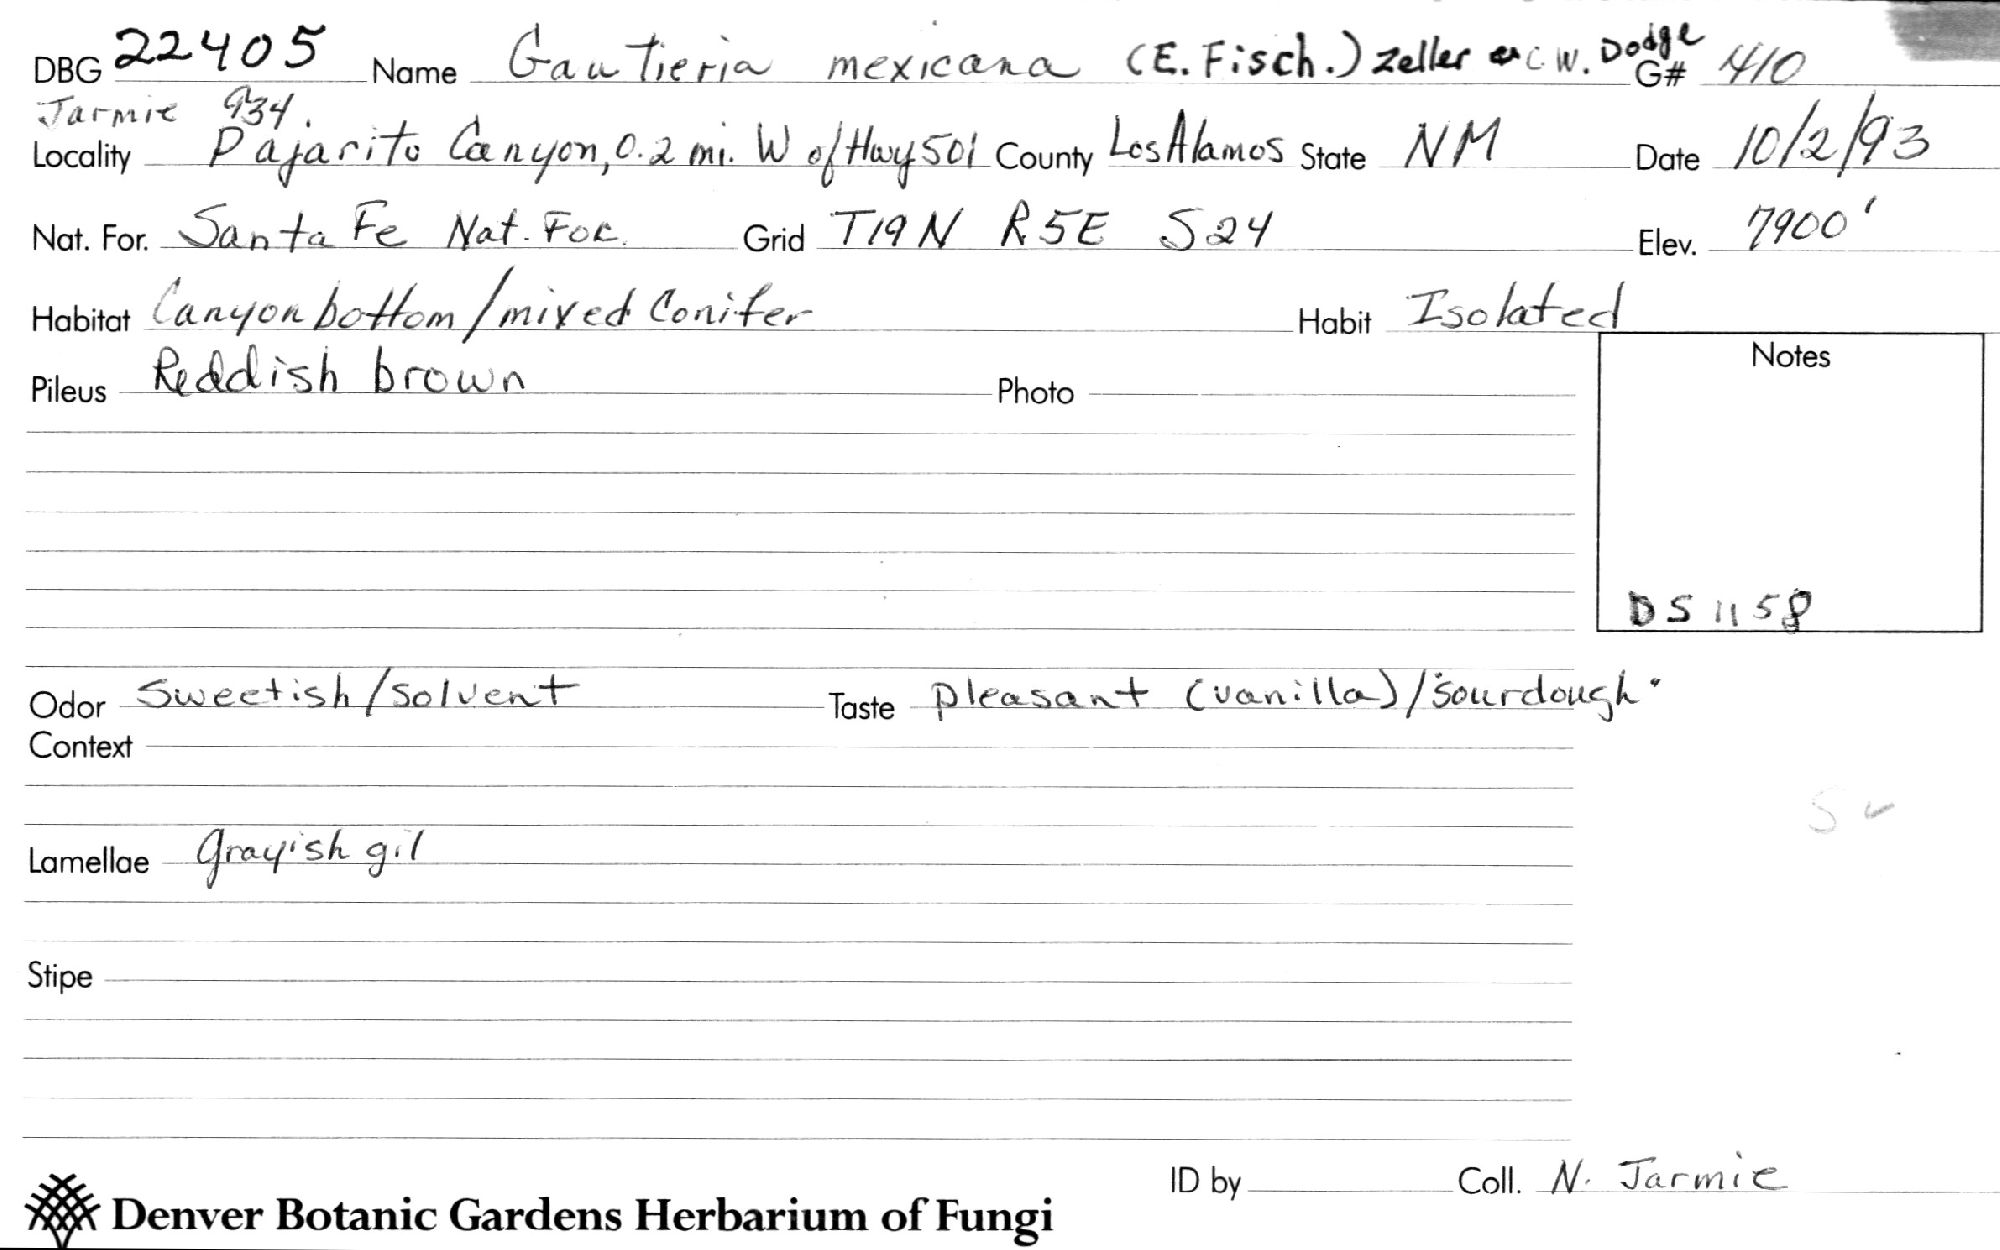 DBG 22405 Name Gautieria mexicana (E. Fisch.) zeller & C W. Dodge G# 410
Jarmie 934.
Locality Pajarito Canyon, 0.2 mi. W of Hwy 501 County Los Alamos State NM Date 10/2/93
Nat. For. Santa Fe Nat. For. Grid T19N R5E S24 Elev. 7900'
Habitat Canyon bottom/mixed Conifer Habit Isolated
Pileus Reddish brown Photo
Notes
DS 1158
Odor Sweetish/solvent Taste pleasant (vanilla)/"sourdough"
Context
Lamellae Grayish gil
Stipe
ID by Coll. N. Jarmie
Denver Botanic Gardens Herbarium of Fungi